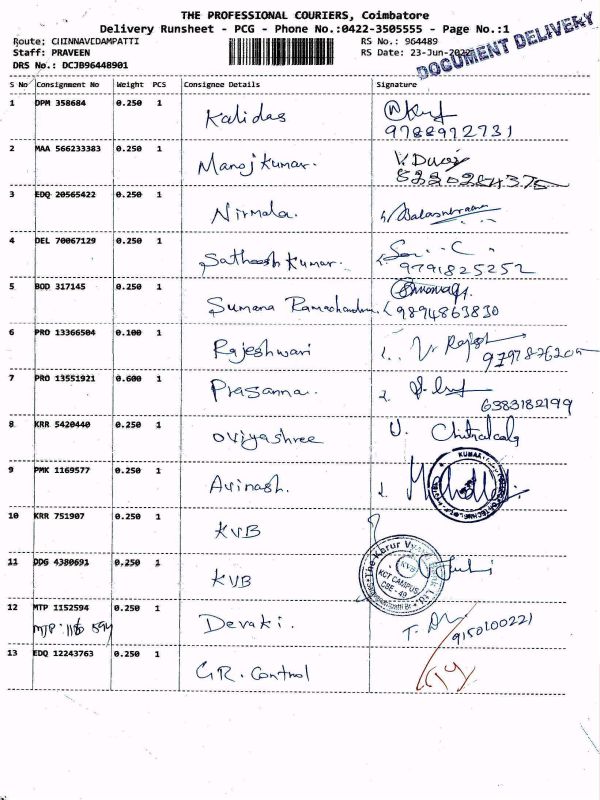 THE PROFESSIONAL COURIERS, Coimbatore
Delivery Runsheet - PCG - Phone No.:0422-3505555 - Page No.:1
DOCUMENT DELIVERY
Route: CHINNAVEDAMPATTI RS No.: 964489
Staff: PRAVEEN RS Date: 23-Jun-2022
DRS No.: DCJB96448901
S No Consignment No Weight PCS Consignee Details Signature
1 DPM 358684 0.250 1 Kalidas
9788972731
2 MAA 566233383 0.250 1 Manojkumar.
8220284375
3 EDQ 20565422 0.250 1 Nirmala.
4 DEL 70067129 0.250 1 Satheesh Kumar.
9791825252
5 BOD 317145 0.250 1 Sumana
9894863830
6 PRO 13366504 0.100 1 Rajeshwari
7 PRO 13551921 0.600 1 Prasanna.
6383182199
8 KRR 5420440 0.250 1 oviyashree
9 PMK 1169577 0.250 1 Avinash.
10 KRR 751907 0.250 1 KVB
11 DDG 4380691 0.250 1 KVB
The Karur Vysya
KVB
KCT CAMPUS
CBE - 49
12 MTP 1152594 0.250 1 Devaki.
9150100221
13 EDQ 12243763 0.250 1 GR. Control